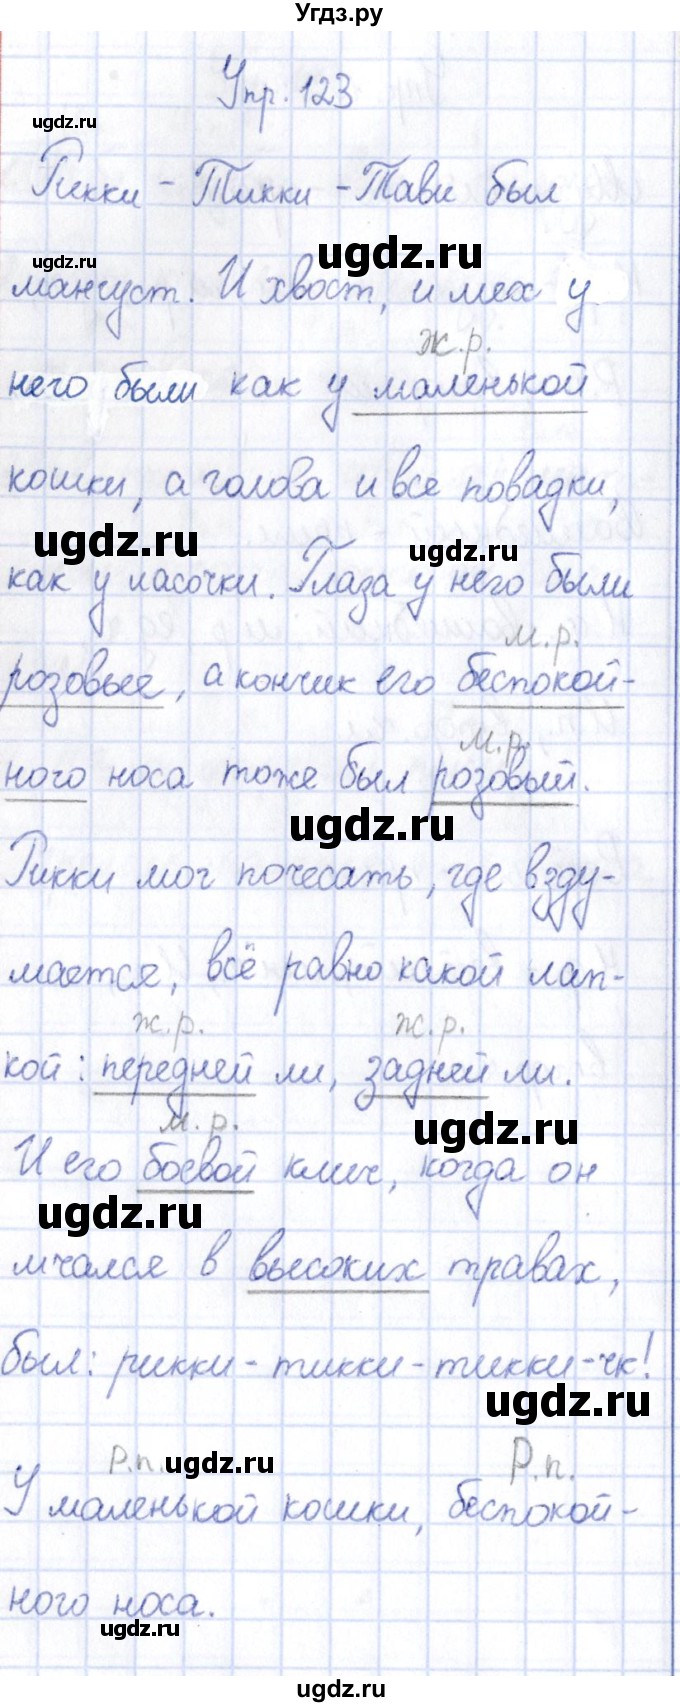 Угдз.ру
Упр. 123
ugdz.ru
Рикки - Тикки - Тави был
ugdz.ru
ugdz.ru
мангуст. И хвост, и мех у
ж.р.
него были как у маленькой
кошки, а голова и все повадки,
ugdz.ru
ugdz.ru
как у ласочки. Глаза у него были
м.р.
розовые, а кончик его беспокой-
м.р.
ного носа тоже был розовый.
ugdz.ru
Рикки мог почесать, где взду-
мается, всё равно какой лап-
ж.р. ж.р.
кой: передней ли, задней ли.
м.р.
ugdz.ru
И его боевой клич, когда он
ugdz.ru
мчался в высоких травах,
был: рикки-тикки-тикки-чк!
ugdz.ru
Р.п. ugdz.ru Р.п.
У маленькой кошки, беспокой-
ного носа.
ugdz.ru
ugdz.ru